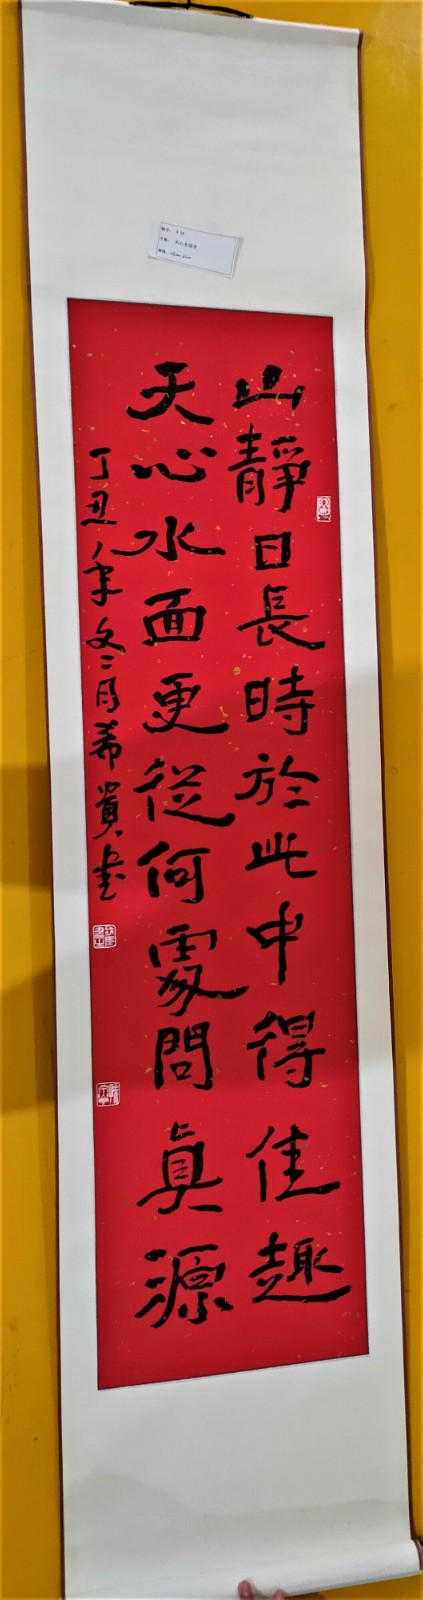 山靜日長時於此中得佳趣
天心水面更從何處問真源
丁丑年文二月希貴書